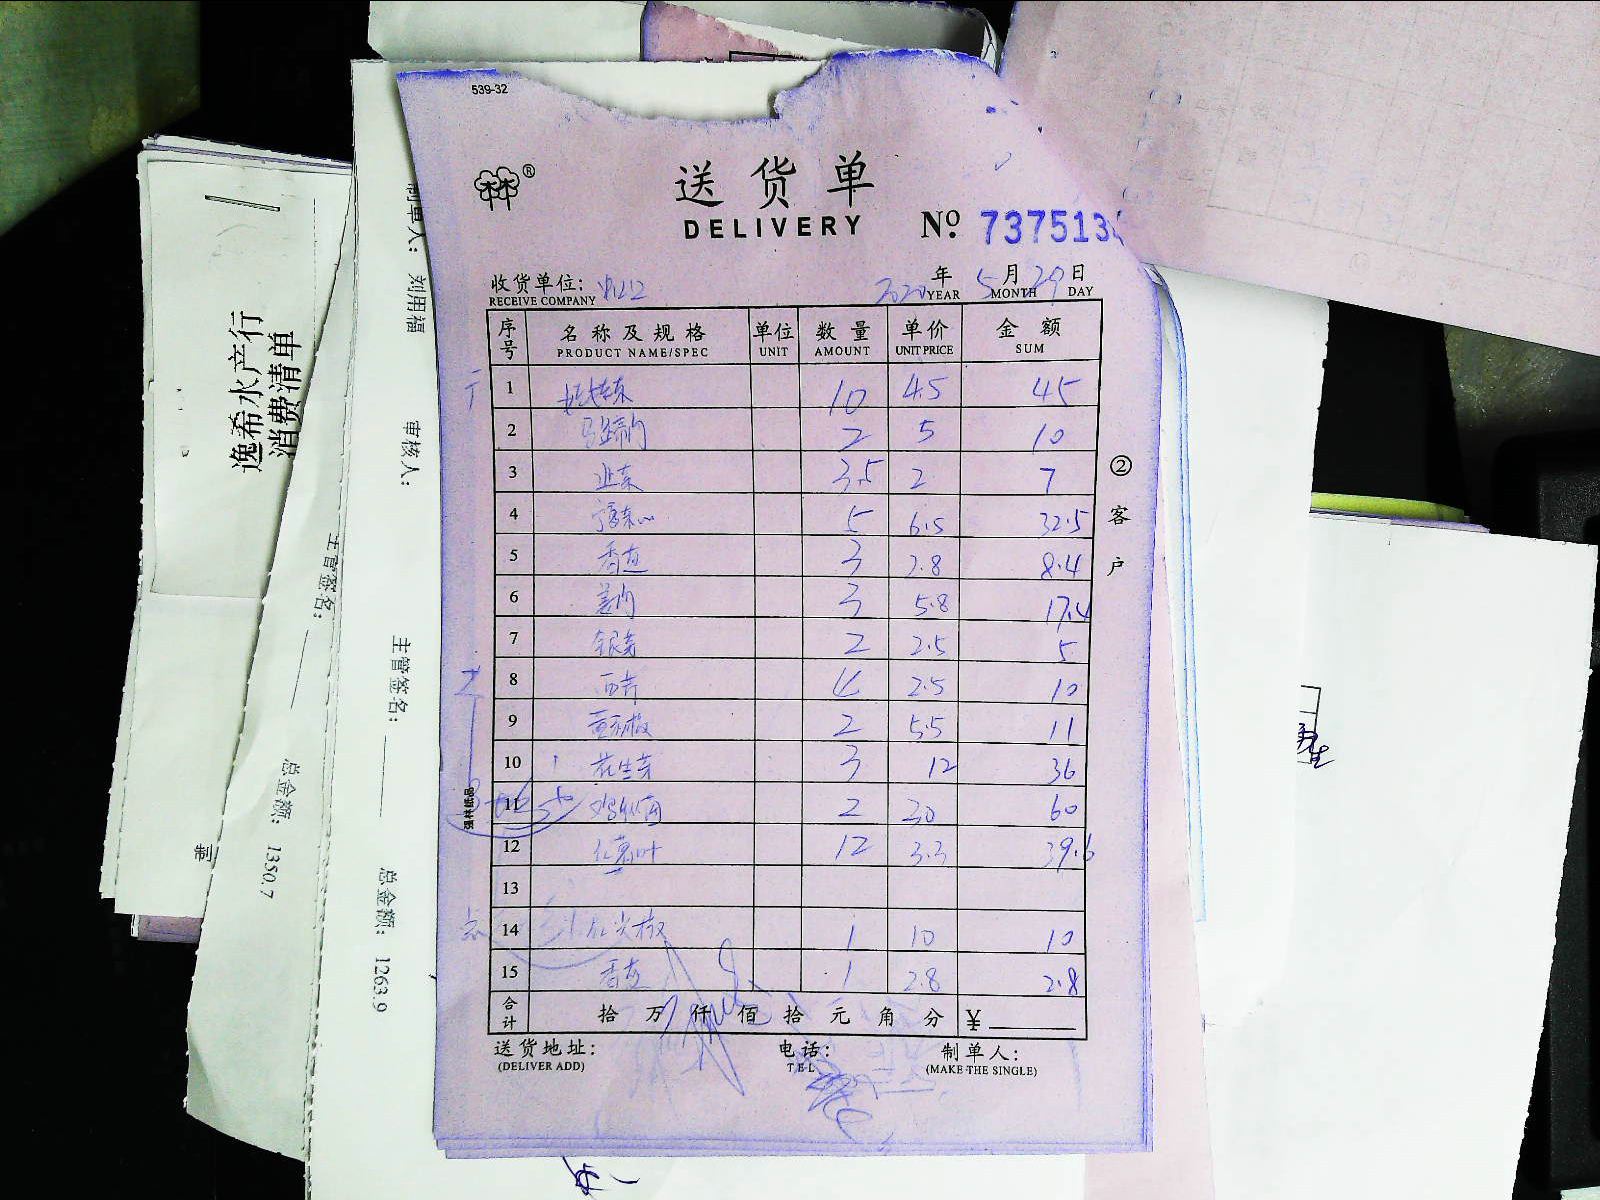 539-32
送货单
DELIVERY
No. 737513
收货单位:
RECEIVE COMPANY
2020 年 5 月 29 日
YEAR MONTH DAY
序号 名称及规格 单位 数量 单价 金额
PRODUCT NAME/SPEC UNIT AMOUNT UNIT PRICE SUM
1 娃娃菜 10 4.5 45
2 马蹄肉 2 5 10
3 韭菜 3.5 2 7
4 5 6.5 32.5
5 香芹 3 2.8 8.4
6 姜肉 3 5.8 17.4
7 银芽 2 2.5 5
8 西芹 4 2.5 10
9 2 5.5 11
10 花生芽 3 12 36
11 鸡枞菌 2 30 60
12 红薯叶 12 3.3 39.6
13
14 红尖椒 1 10 10
15 1 2.8 2.8
合计 拾 万 仟 佰 拾 元 角 分 ¥
送货地址: 电话: 制单人:
(DELIVER ADD) TEL (MAKE THE SINGLE)
② 客户
强林纸品
逸希水产行
消费清单
制单人: 刘用福
审核人:
主管签名:
总金额: 1263.9
主管签名:
总金额: 1350.7
制